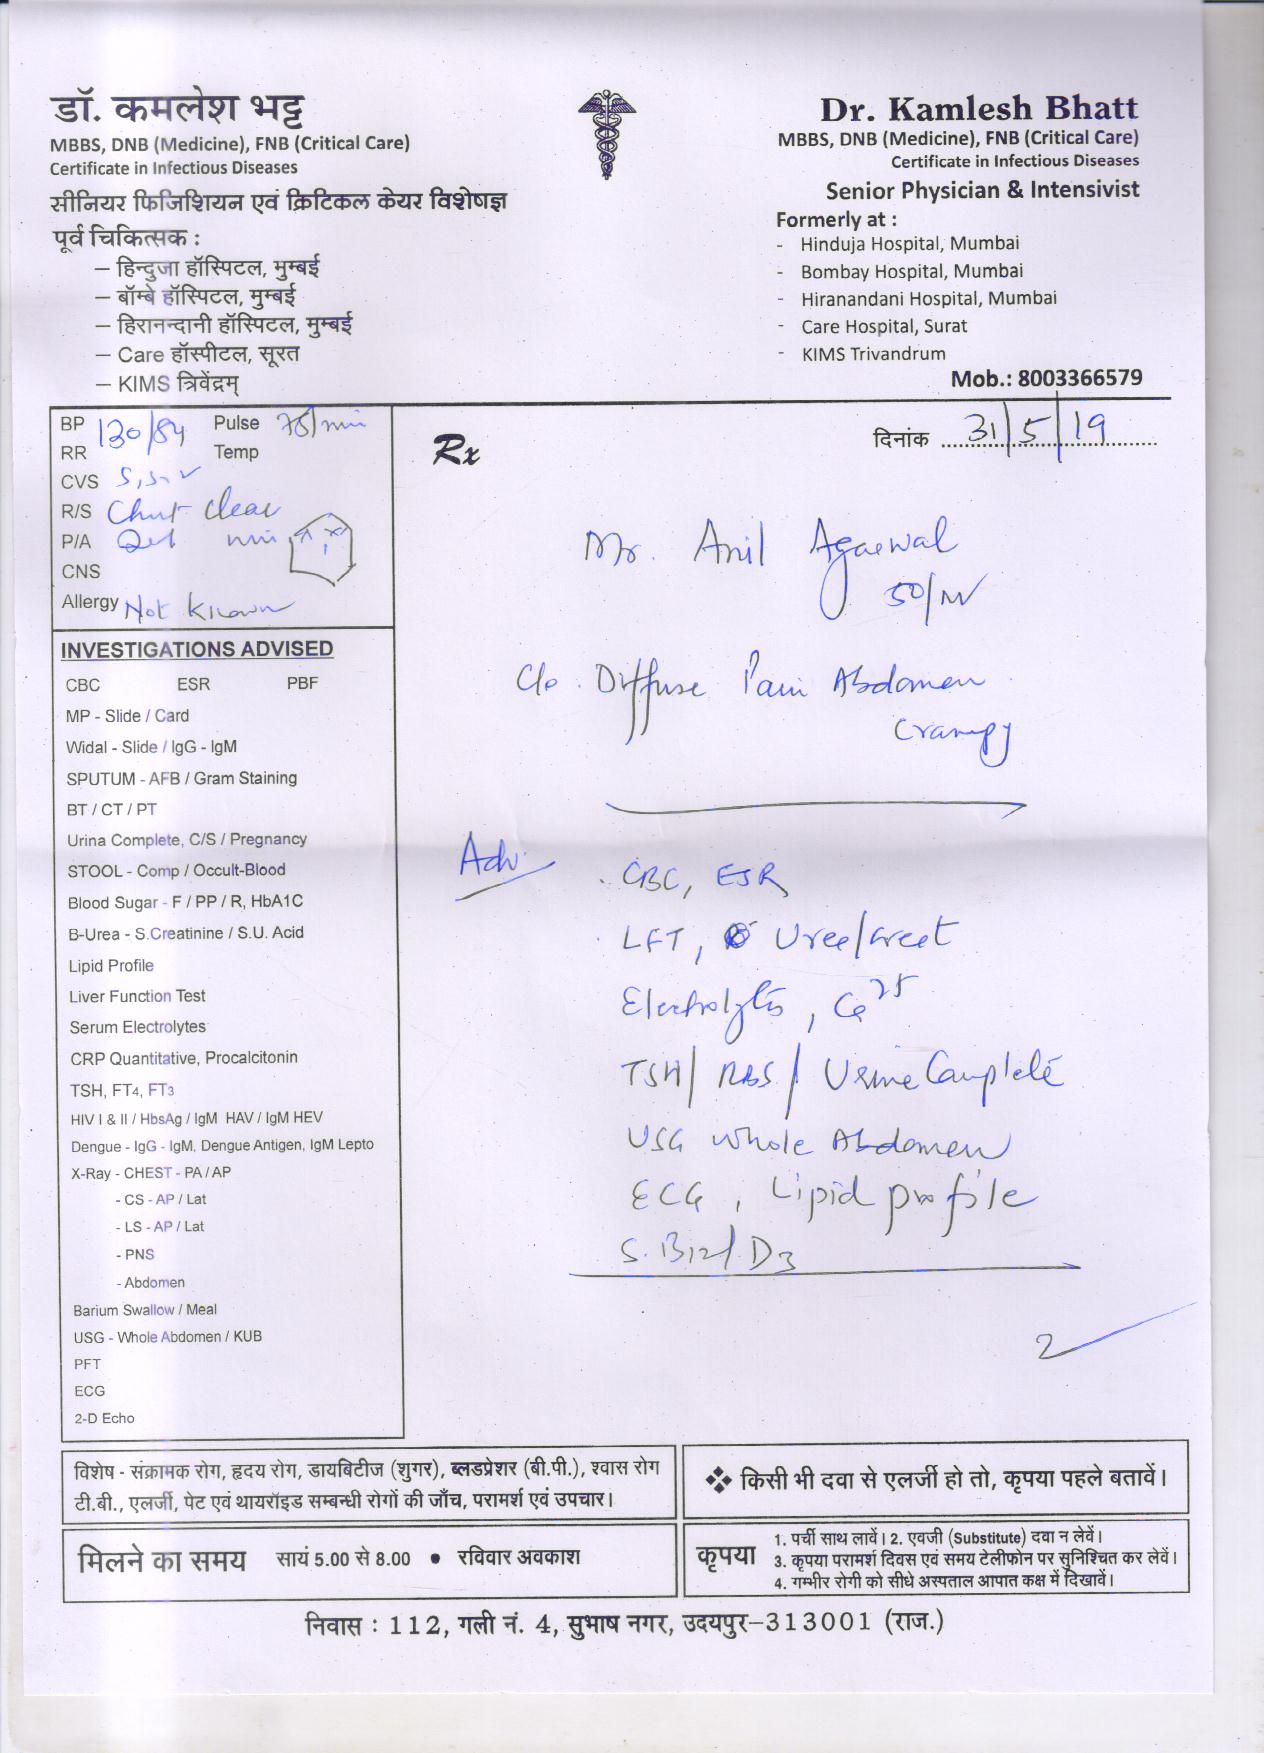 डॉ. कमलेश भट्ट
MBBS, DNB (Medicine), FNB (Critical Care)
Certificate in Infectious Diseases
सीनियर फिजिशियन एवं क्रिटिकल केयर विशेषज्ञ
पूर्व चिकित्सक :
– हिन्दुजा हॉस्पिटल, मुम्बई
– बॉम्बे हॉस्पिटल, मुम्बई
– हिरानन्दानी हॉस्पिटल, मुम्बई
– Care हॉस्पीटल, सूरत
– KIMS त्रिवेंद्रम्
Dr. Kamlesh Bhatt
MBBS, DNB (Medicine), FNB (Critical Care)
Certificate in Infectious Diseases
Senior Physician & Intensivist
Formerly at :
- Hinduja Hospital, Mumbai
- Bombay Hospital, Mumbai
- Hiranandani Hospital, Mumbai
- Care Hospital, Surat
- KIMS Trivandrum
Mob.: 8003366579
BP 130/84 Pulse 78/min
RR Temp
CVS S1S2
R/S Chest clear
P/A
CNS
Allergy Not Known
INVESTIGATIONS ADVISED
CBC ESR PBF
MP - Slide / Card
Widal - Slide / IgG - IgM
SPUTUM - AFB / Gram Staining
BT / CT / PT
Urina Complete, C/S / Pregnancy
STOOL - Comp / Occult-Blood
Blood Sugar - F / PP / R, HbA1C
B-Urea - S.Creatinine / S.U. Acid
Lipid Profile
Liver Function Test
Serum Electrolytes
CRP Quantitative, Procalcitonin
TSH, FT4, FT3
HIV I & II / HbsAg / IgM HAV / IgM HEV
Dengue - IgG - IgM, Dengue Antigen, IgM Lepto
X-Ray - CHEST - PA / AP
- CS - AP / Lat
- LS - AP / Lat
- PNS
- Abdomen
Barium Swallow / Meal
USG - Whole Abdomen / KUB
PFT
ECG
2-D Echo
Rx
दिनांक 31/5/19
Mr. Anil Agarwal
50/M
C/o. Diffuse Pain Abdomen
Crampy
Adv.
CBC, ESR
LFT, Urea/Creat
Electrolytes, Ca
TSH/ RBS / Urine Complete
USG Whole Abdomen
ECG, Lipid profile
S. B12/D3
विशेष - संक्रामक रोग, हृदय रोग, डायबिटीज (शुगर), ब्लडप्रेशर (बी.पी.), श्वास रोग
टी.बी., एलर्जी, पेट एवं थायरॉइड सम्बन्धी रोगों की जाँच, परामर्श एवं उपचार।
❖ किसी भी दवा से एलर्जी हो तो, कृपया पहले बतावें।
मिलने का समय सायं 5.00 से 8.00 ● रविवार अवकाश
कृपया
1. पर्ची साथ लावें। 2. एवजी (Substitute) दवा न लेवें।
3. कृपया परामर्श दिवस एवं समय टेलीफोन पर सुनिश्चित कर लेवें।
4. गम्भीर रोगी को सीधे अस्पताल आपात कक्ष में दिखावें।
निवास : 112, गली नं. 4, सुभाष नगर, उदयपुर-313001 (राज.)